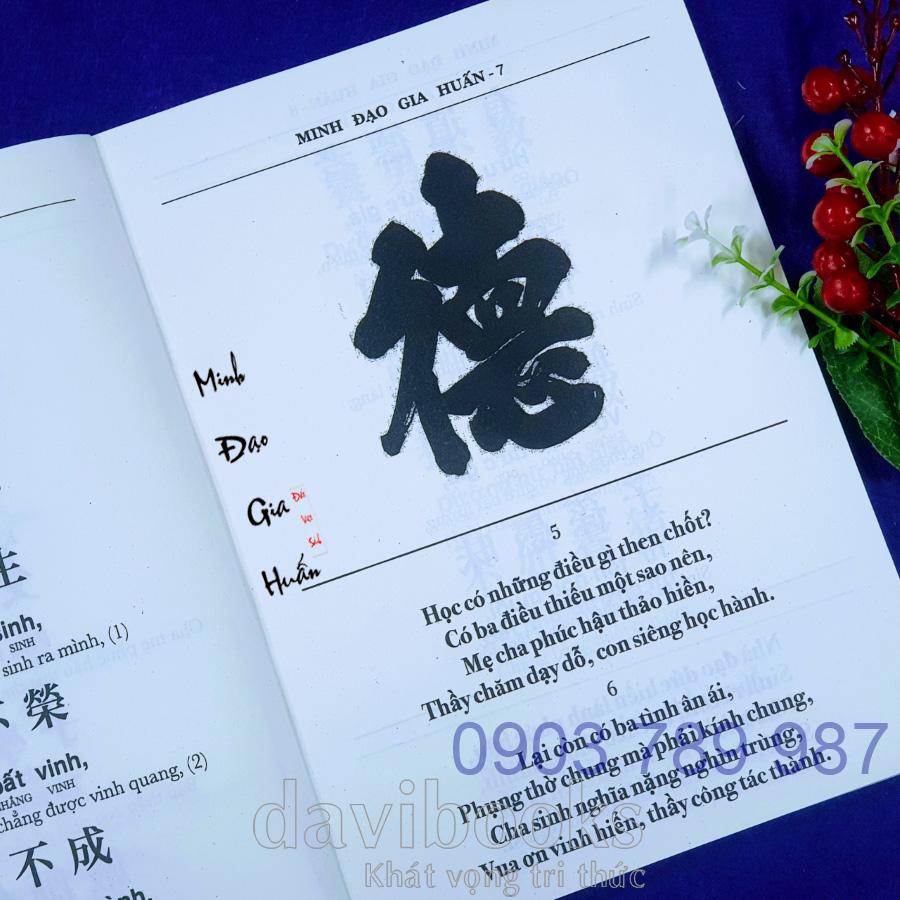 生
sinh,
SINH
sinh ra mình, (1)
榮
bất vinh,
CHẲNG VINH
chẳng được vinh quang, (2)
不成
MINH ĐẠO GIA HUẤN - 7
德
Minh
Đạo
Gia
Huấn
5
Học có những điều gì then chốt?
Có ba điều thiếu một sao nên,
Mẹ cha phúc hậu thảo hiền,
Thầy chăm dạy dỗ, con siêng học hành.
6
Lại còn có ba tình ân ái,
Phụng thờ chung mà phải kính chung,
Cha sinh nghĩa nặng nghìn trùng,
Vua ơn vinh hiển, thầy công tác thành.
0903 789 987
davibooks
Khát vọng tri thức